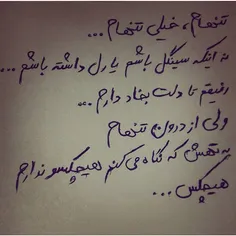 تنهام، خیلی تنهام ...
نه اینکه سینگل باشم یا رل داشته باشم ...
رفیقم تا دلت بخواد دارم ...
ولی از درون تنهام
به تهش که نگاه می کنم هیچکسو ندارم
هیچکس ...